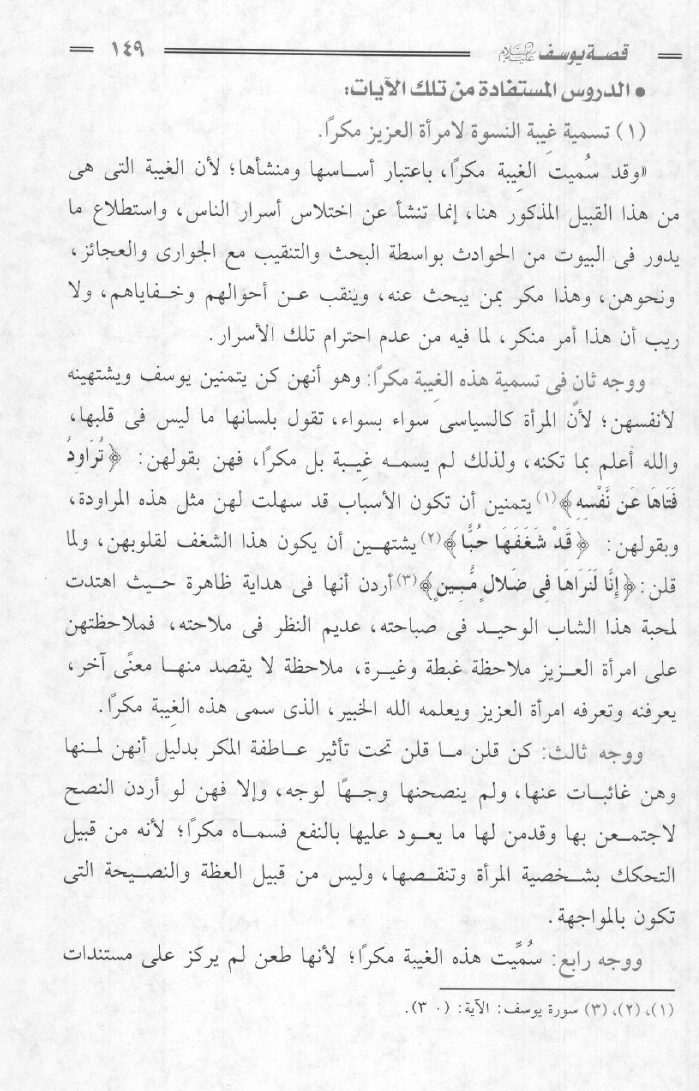 قصة يوسف عليه السلام ١٤٩
• الدروس المستفادة من تلك الآيات:
(١) تسمية غيبة النسوة لامرأة العزيز مكرًا.
«وقد سُميت الغيبة مكرًا، باعتبار أساسها ومنشأها؛ لأن الغيبة التى هى
من هذا القبيل المذكور هنا، إنما تنشأ عن اختلاس أسرار الناس، واستطلاع ما
يدور فى البيوت من الحوادث بواسطة البحث والتنقيب مع الجوارى والعجائز،
ونحوهن، وهذا مكر بمن يبحث عنه، وينقب عن أحوالهم وخفاياهم، ولا
ريب أن هذا أمر منكر، لما فيه من عدم احترام تلك الأسرار.
ووجه ثانٍ فى تسمية هذه الغِيبة مكرًا: وهو أنهن كن يتمنين يوسف ويشتهينه
لأنفسهن؛ لأن المرأة كالسياسى سواء بسواء، تقول بلسانها ما ليس فى قلبها،
والله أعلم بما تكنه، ولذلك لم يسمه غيبة بل مكرًا، فهن بقولهن: ﴿تُرَاوِدُ
فَتَاهَا عَن نَّفْسِهِ﴾(١) يتمنين أن تكون الأسباب قد سهلت لهن مثل هذه المراودة،
وبقولهن: ﴿قَدْ شَغَفَهَا حُبًّا﴾(٢) يشتهين أن يكون هذا الشغف لقلوبهن، ولما
قلن: ﴿إِنَّا لَنَرَاهَا فِي ضَلالٍ مُّبِينٍ﴾(٣) أردن أنها فى هداية ظاهرة حيث اهتدت
لمحبة هذا الشاب الوحيد فى صباحته، عديم النظر فى ملاحته، فملاحظتهن
على امرأة العزيز ملاحظة غبطة وغيرة، ملاحظة لا يقصد منها معنًى آخر،
يعرفنه وتعرفه امرأة العزيز ويعلمه الله الخبير، الذى سمى هذه الغِيبة مكرًا.
ووجه ثالث: كن قلن ما قلن تحت تأثير عاطفة المكر بدليل أنهن لمنها
وهن غائبات عنها، ولم ينصحنها وجهًا لوجه، وإلا فهن لو أردن النصح
لاجتمعن بها وقدمن لها ما يعود عليها بالنفع فسماه مكرًا؛ لأنه من قبيل
التحكك بشخصية المرأة وتنقصها، وليس من قبيل العظة والنصيحة التى
تكون بالمواجهة.
ووجه رابع: سُمِّيت هذه الغيبة مكرًا؛ لأنها طعن لم يركز على مستندات
(١)، (٢)، (٣) سورة يوسف: الآية: (٣٠).